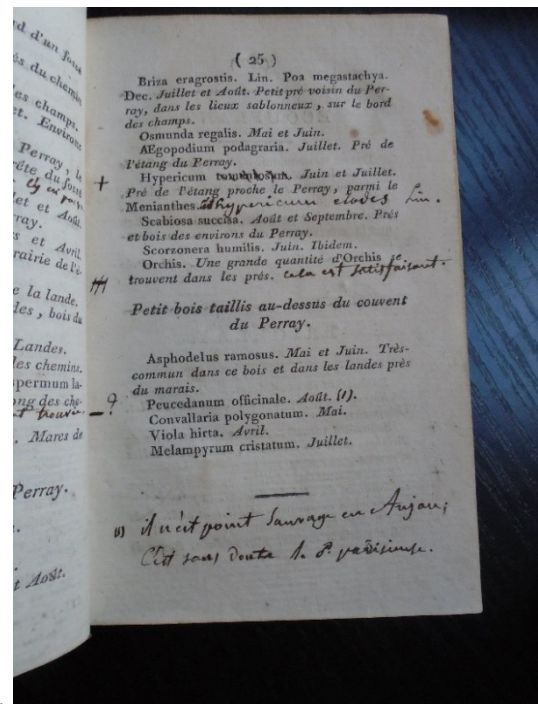 rd d'un fossé
és du chemin
les champs.
et. Environs
Perray, le
rête du fossé
let et Août.
rray.
s et Avril.
rairie de l'é-
e la lande.
les, bois du
Landes.
les chemins.
permum la-
ong des che-
t trouvée
. Mares de
Perray.
t Août.
( 25 )
Briza eragrostis. Lin. Poa megastachya.
Dec. Juillet et Août. Petit pré voisin du Per-
ray, dans les lieux sablonneux, sur le bord
des champs.
Osmunda regalis. Mai et Juin.
Ægopodium podagraria. Juillet. Pré de
l'étang du Perray.
+ Hypericum tomentosum. Juin et Juillet.
Pré de l'étang proche le Perray, parmi le
Menianthes. hypericum elodes Lin.
Scabiosa succisa. Août et Septembre. Prés
et bois des environs du Perray.
Scorzonera humilis. Juin. Ibidem.
Orchis. Une grande quantité d'Orchis se
trouvent dans les prés. cela est satisfaisant.
Petit bois taillis au-dessus du couvent
du Perray.
Asphodelus ramosus. Mai et Juin. Très-
commun dans ce bois et dans les landes près
du marais.
– ? Peucedanum officinale. Août. (1).
Convallaria polygonatum. Mai.
Viola hirta. Avril.
Melampyrum cristatum. Juillet.
(1) il n'est point Sauvage en Anjou;
C'est sans doute le P. parisiense.